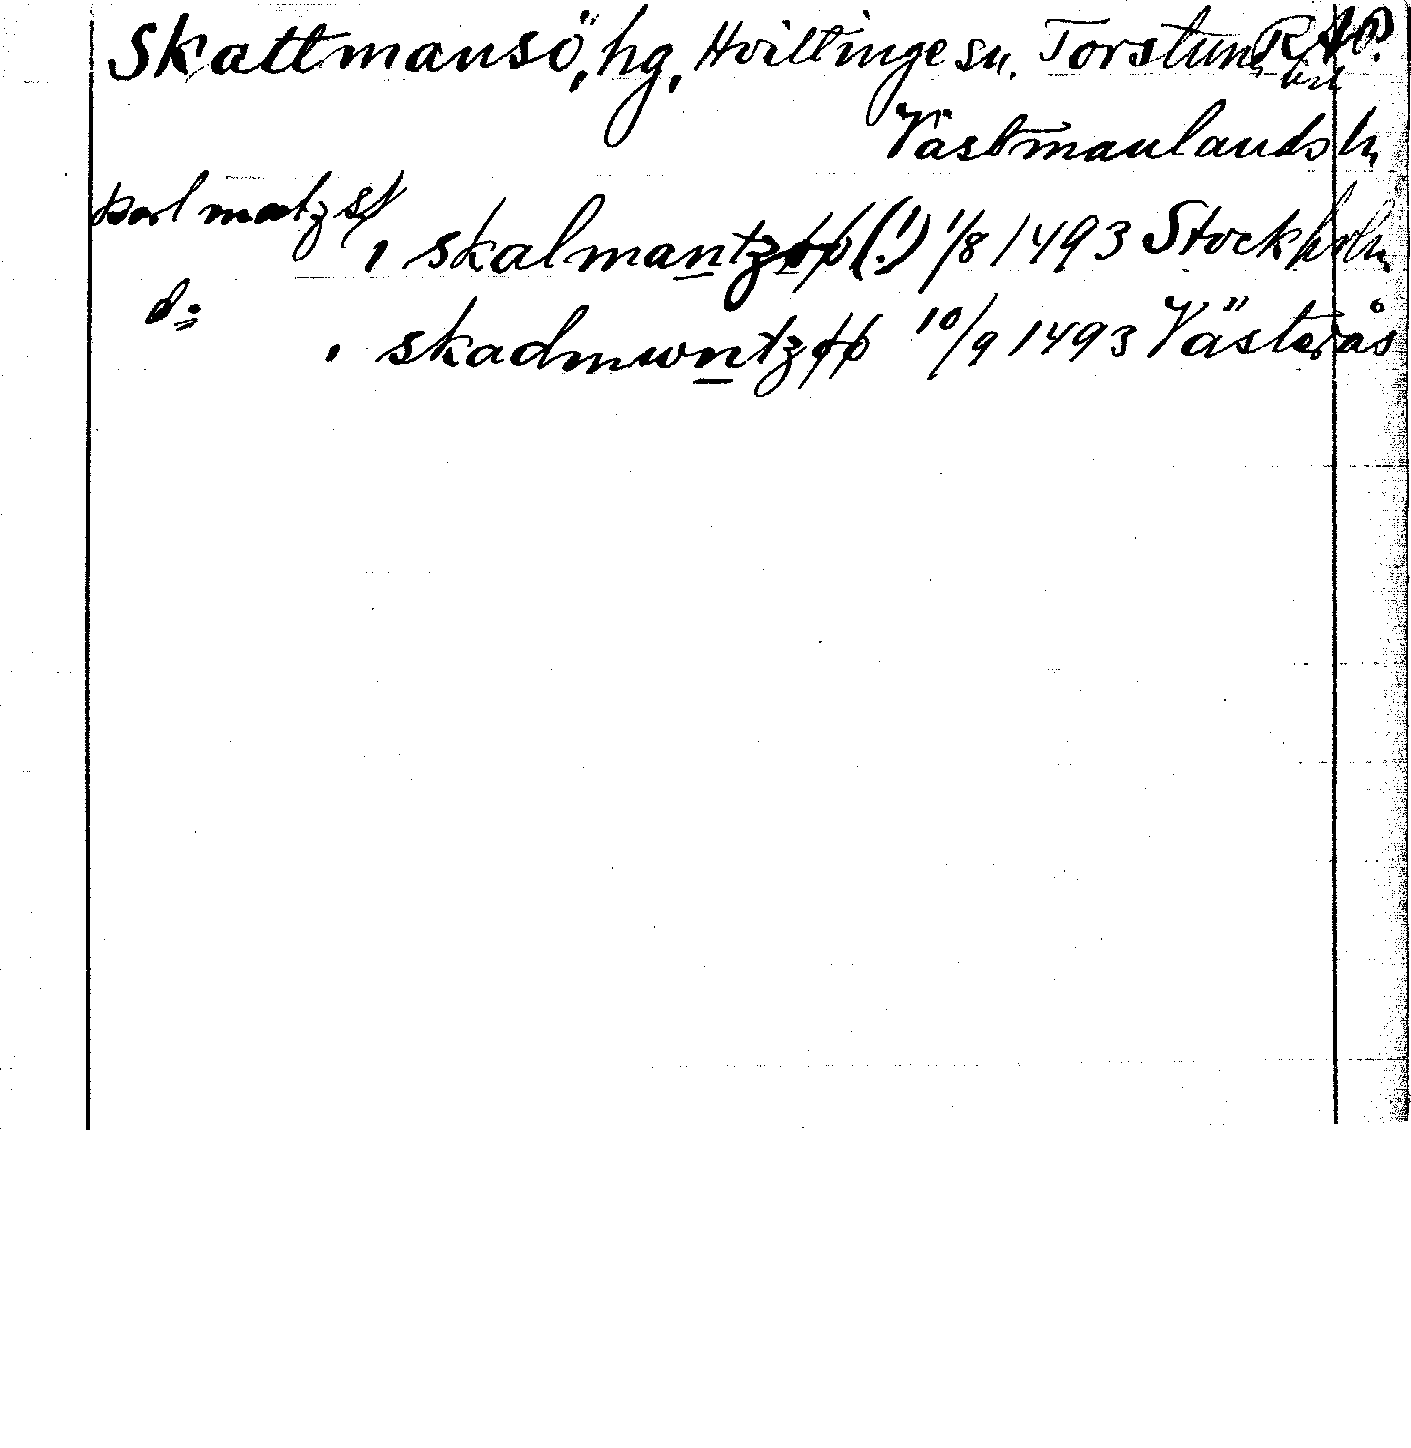 Skattmansö, hg, Hvittinge sn. Torstuna RAP.
Västmanlands ln
karl matz
, skalmantzøø (!) 1/8 1493 Stockholm
d:
, skadmwntzøø 10/9 1493 Västerås